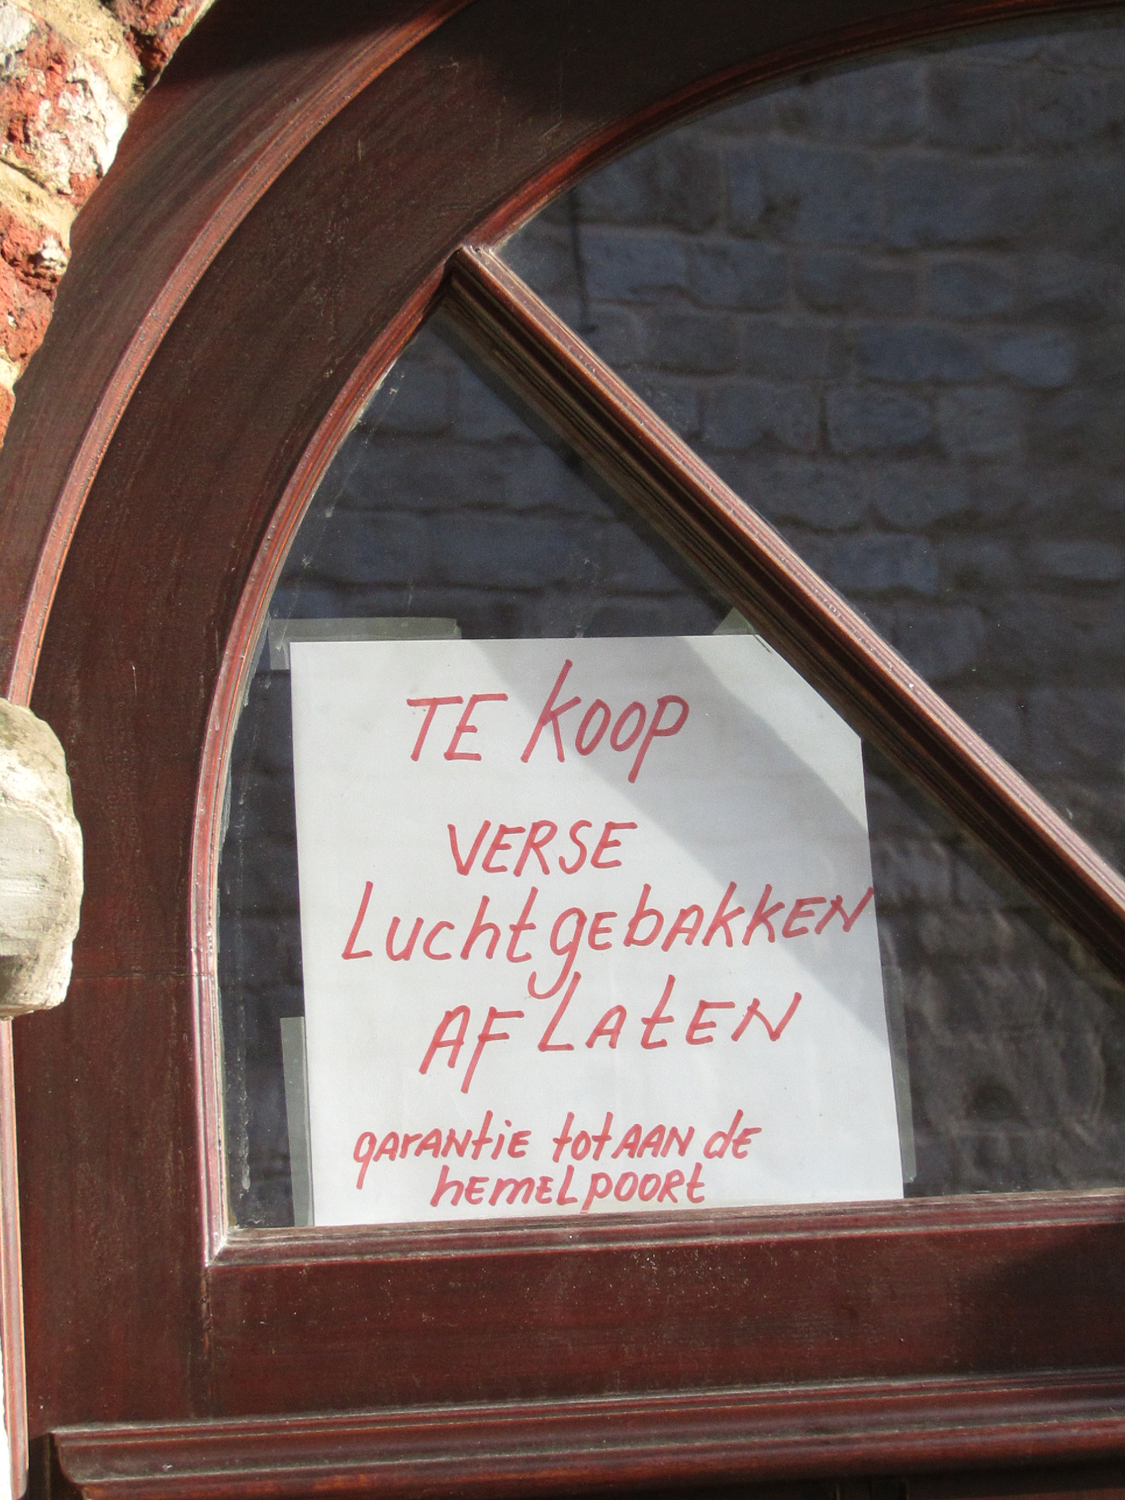 TE KOOP
VERSE
Luchtgebakken
AFLATEN
garantie tot aan de
hemelpoort